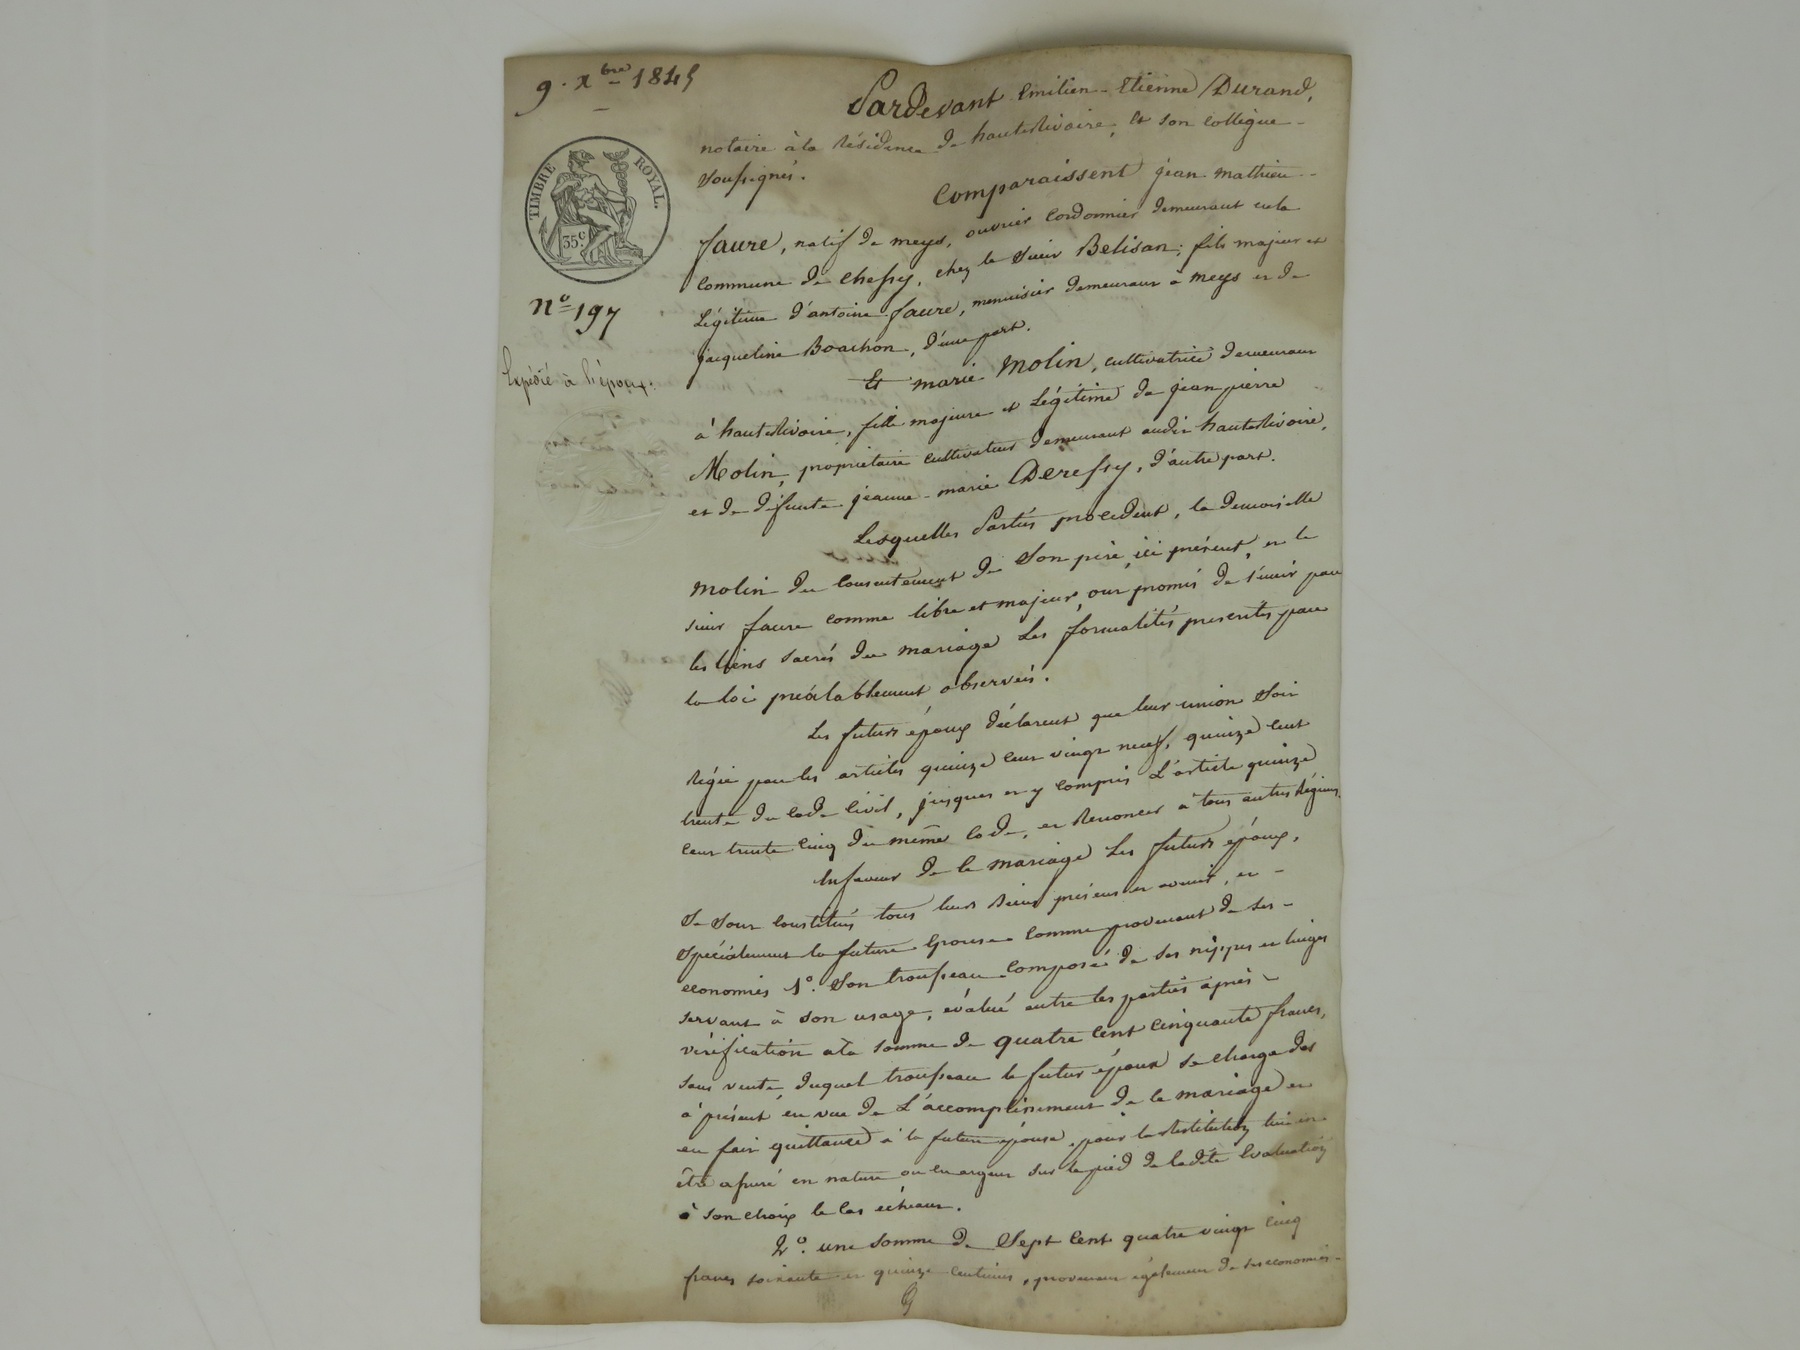 9. Xbre 1845
Pardevant Emilien-Etienne Durand,
notaire à la Résidence de hauterivoire, et son collègue
soussignés.
Comparaissent jean mathieu
faure, natif de meys, ouvrier Cordonnier demeurant en la
commune de Chessy, chez le sieur Belisan; fils majeur et
Légitime d'antoine faure, menuisier demeurant à meys et de
jacqueline Boachon, d'une part.
Et marie Molin, cultivatrice demeurant
à hauterivoire, fille majeure et Légitime de jean pierre
Molin, propriétaire cultivateur demeurant audit hauterivoire,
et de défunte jeanne-marie Deressy, d'autre part.
Lesquelles Parties procedent, la demoiselle
molin du consentement de son père, ici présent, et le
sieur faure comme libre et majeur, ont promis de s'unir par
les liens sacrés du mariage les formalités prescrites par
la loi préalablement observées.
Les futurs époux déclarent que leur union soit
Régie par les articles quinze cent vingt neuf, quinze cent
trente du code Civil, jusques et y compris L'article quinze
cent trente cinq du même Code, et Renoncer à tous autres Régimes.
En faveur de ce mariage Les futurs époux,
se sont constitués tous leurs biens présens et avenir, et
spécialement la future Epouse comme provenant de ses
economies 1º. Son trousseau composé de ses nippes et linges
servant à son usage, évalué entre les parties après
vérification à la somme de quatre cent cinquante francs,
sans vente, duquel trousseau le futur époux se charge dès
à présent en vue de L'accomplissement de ce mariage et
en fait quittance à la future épouse, pour la Restitution lui en
être assuré en nature ou en argent sur le pied de ladite Evaluation
à son choix le cas échéant.
2º. une somme de Sept cent quatre vingt cinq
francs soixante et quinze centimes, provenant également de ses economies
TIMBRE ROYAL.
35 C.
Nº 197
Expédié à l'époux.